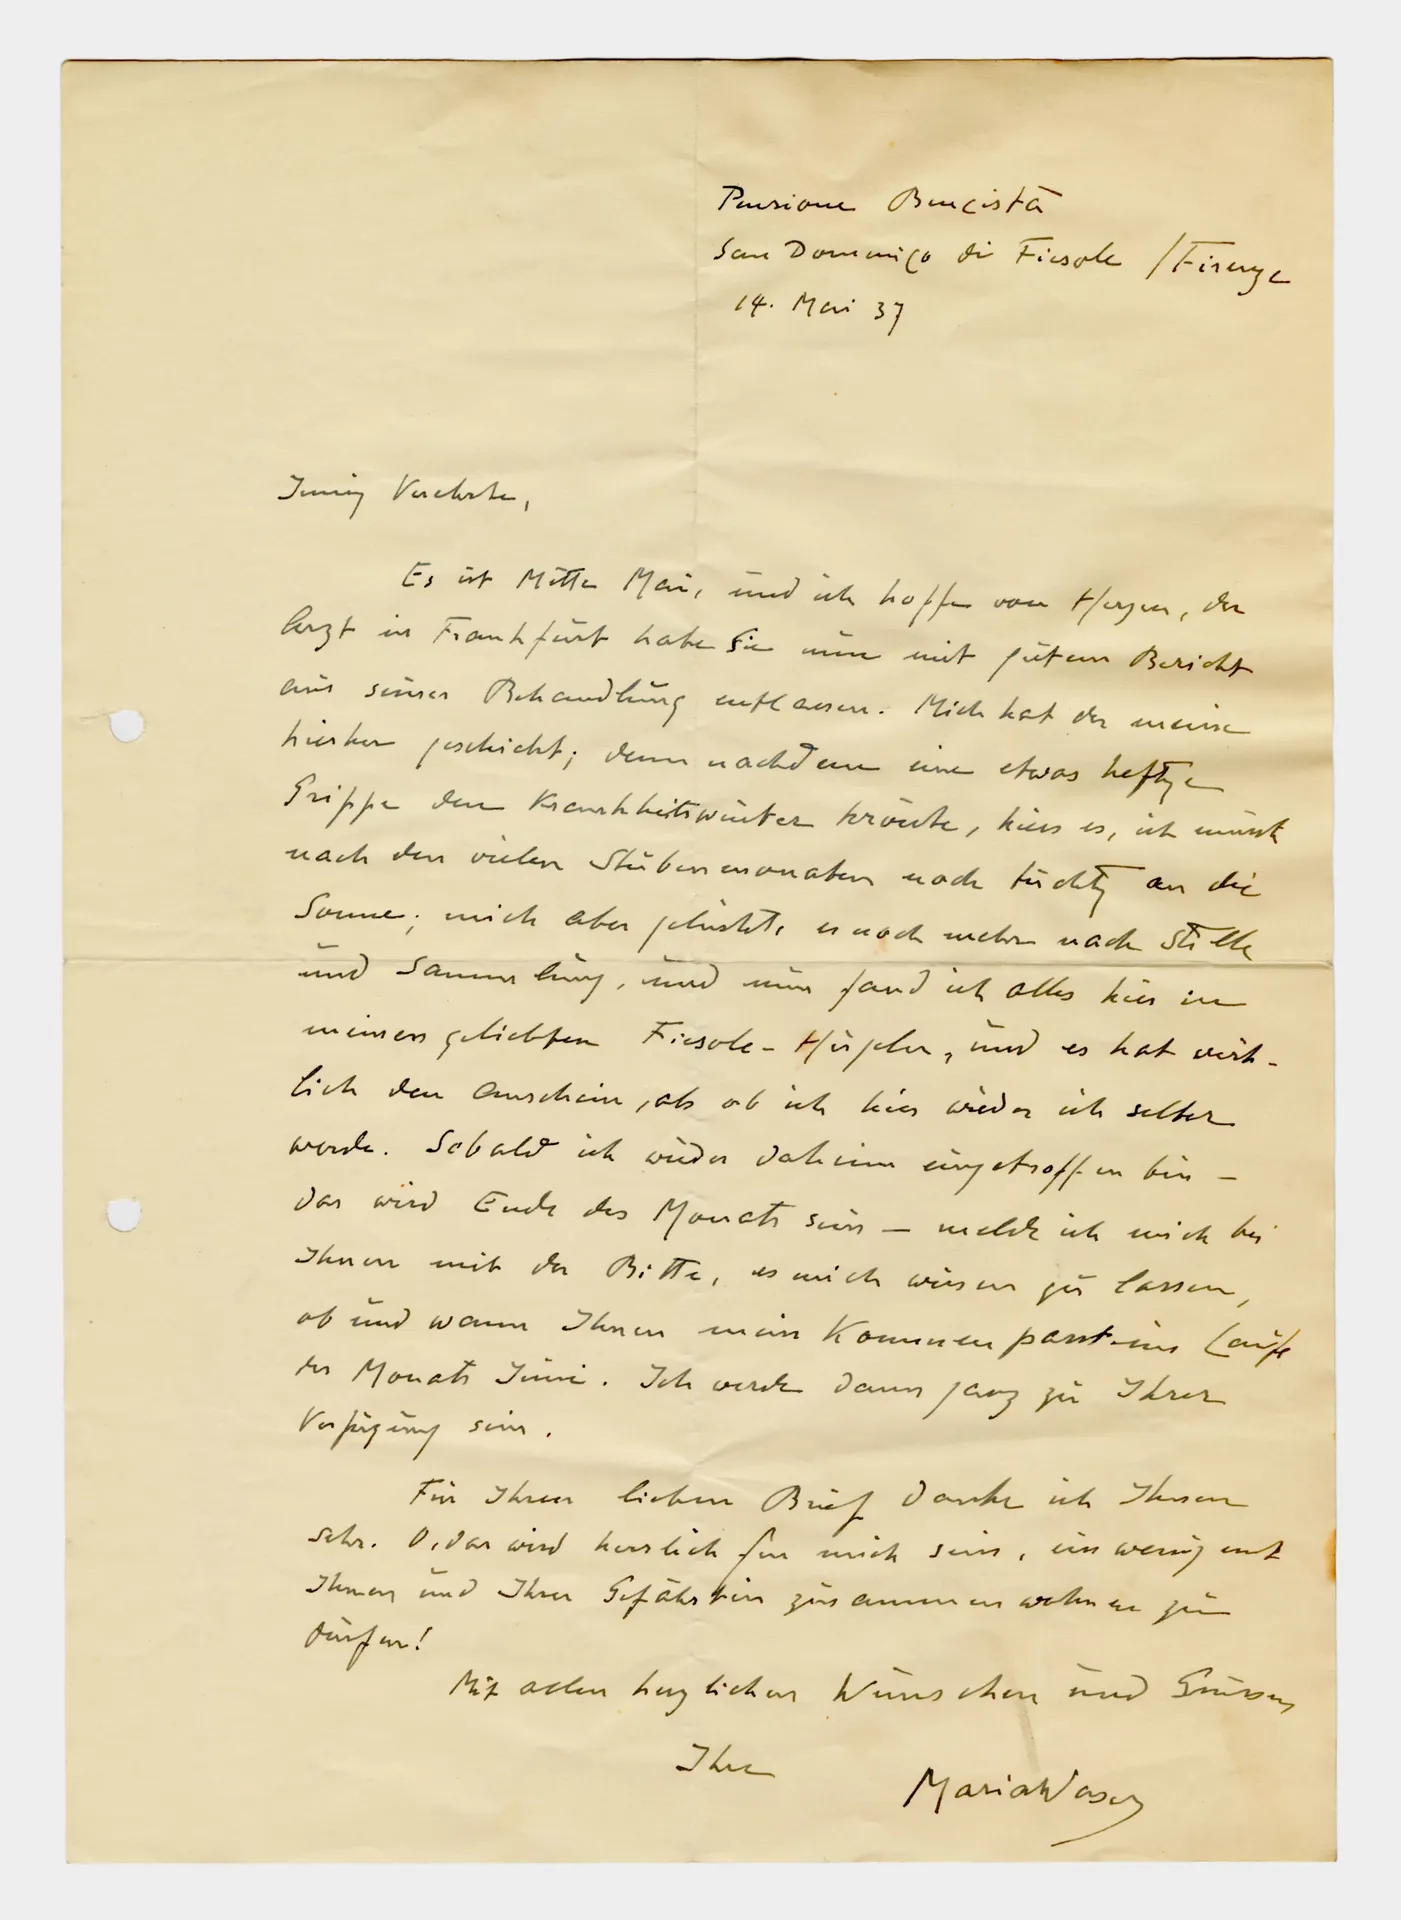 Pensione Bencistà
San Domenico di Fiesole / Firenze
14. Mai 37
Innig Verehrte,
Es ist Mitte Mai, und ich hoffe von Herzen, der
Arzt in Frankfurt habe Sie nun mit gutem Bericht
aus seiner Behandlung entlassen. Mich hat der meine
hierher geschickt; denn nachdem eine etwas heftige
Grippe den Krankheitswinter krönte, hiess es, ich müsste
nach den vielen Stubenmonaten noch tüchtig an die
Sonne; mich aber gelüstete es noch mehr nach Stille
und Sammlung, und nun fand ich alles hier in
meinen geliebten Fiesole-Hügeln, und es hat wirk-
lich den Anschein, als ob ich hier wieder ich selber
werde. Sobald ich wieder daheim eingetroffen bin –
das wird Ende des Monats sein – melde ich mich bei
Ihnen mit der Bitte, es mich wissen zu lassen,
ob und wann Ihnen mein Kommen passt im Laufe
des Monats Juni. Ich werde dann ganz zu Ihrer
Verfügung sein.
Für Ihren lieben Brief danke ich Ihnen
sehr. O, das wird herrlich für mich sein, ein wenig mit
Ihnen und Ihrer Gefährtin zusammenwohnen zu
dürfen!
Mit allen herzlichen Wünschen und Grüssen
Ihre
Maria Waser